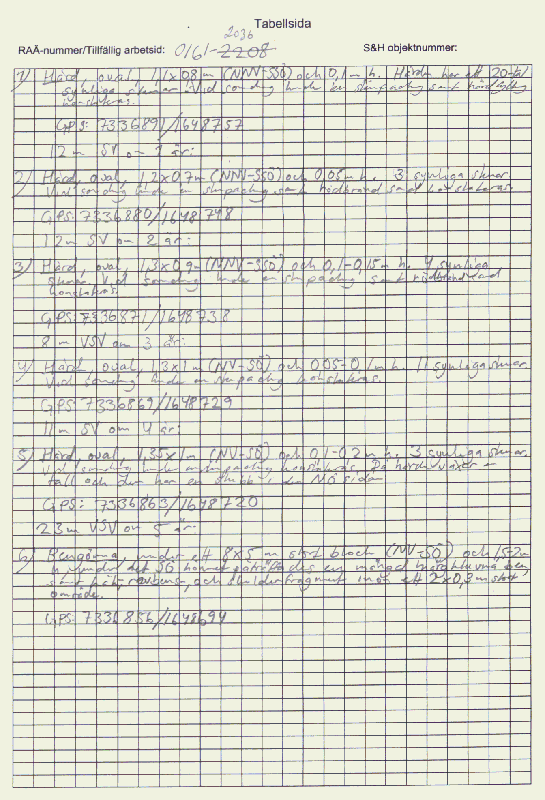 Tabellsida
2036
RAÄ-nummer/Tillfällig arbetsid: 0161-2208
S&H objektnummer:
1) Härd, oval, 1,1x0,8 m (NNV-SSÖ) och 0,1 m h. Härden har ett 20-tal
synliga stenar. Vid sondning kunde en stenpackning samt
konstateras.
GPS: 7336891/1648757
12 m SV om 1 är:
2) Härd, oval, 1,2x0,7 m (NNV-SSÖ) och 0,05 m h. 3 synliga stenar.
Vid sondning kunde en stenpackning samt rödbränd sand konstateras.
GPS: 7336880/1648748
12 m SV om 2 är:
3) Härd, oval, 1,3x0,9 m (NNV-SSÖ) och 0,1-0,15 m h. 4 synliga
stenar. Vid sondning kunde en stenpackning samt rödbränd sand
konstateras.
GPS: 7336871/1648738
8 m VSV om 3 är:
4) Härd, oval, 1,3x1 m (NV-SÖ) och 0,05-0,1 m h. 11 synliga stenar.
Vid sondning kunde en stenpackning konstateras.
GPS: 7336869/1648729
11 m SV om 4 är:
5) Härd, oval, 1,35x1 m (NV-SÖ) och 0,1-0,2 m h. 3 synliga stenar.
Vid sondning kunde en stenpackning konstateras. På härden växer en
tall och den har en stubbe i den NÖ sidan
GPS: 7336863/1648720
23 m VSV om 5 är:
6) Bengömma, under ett 8x5 m stort block (NV-SÖ) och 1,5-2 m
h. Under det SÖ hörnet påträffades en mängd märgkluvna ben,
samt revbens- och skulderfragment inom ett 2x0,3 m stort
område.
GPS: 7336856/1648694